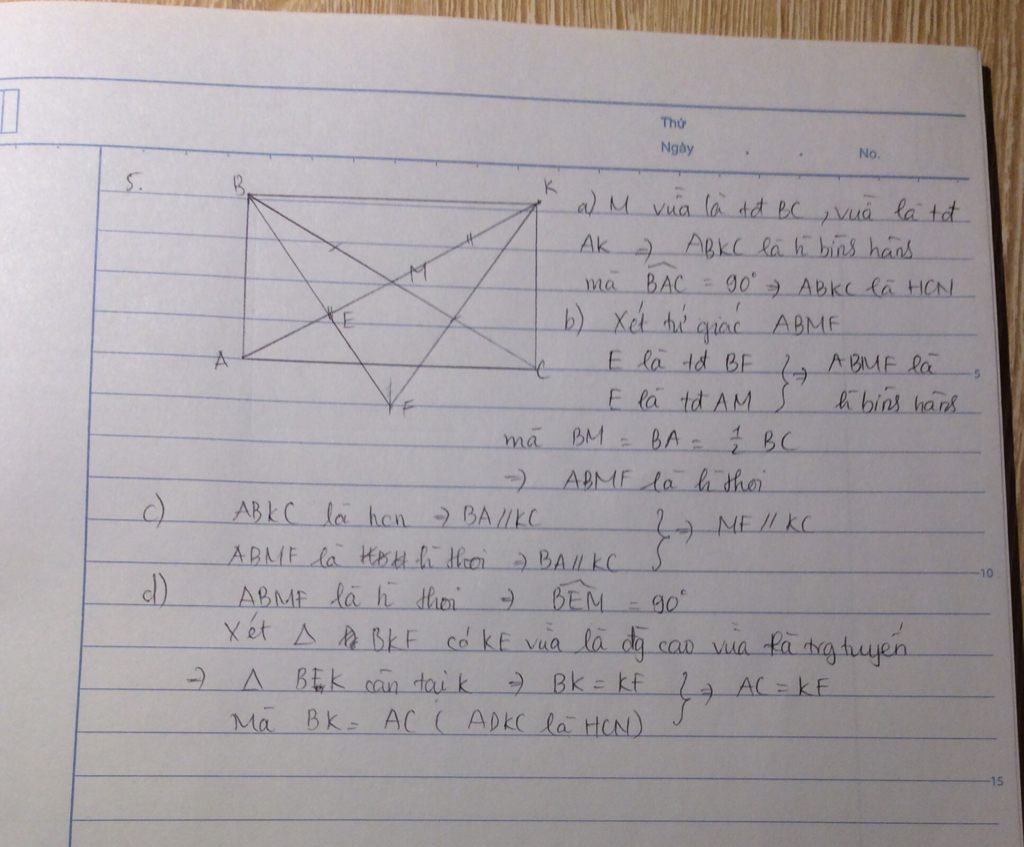 Thứ
Ngày . . No.
5.
B
K
M
E
A
C
F
a) M vừa là tđ BC, vừa là tđ
AK => ABKC là h bình hành
mà BAC = 90° => ABKC là HCN
b) Xét tứ giác ABMF
E là tđ BF } => ABMF là
E là tđ AM h bình hành
5
mà BM = BA = 1/2 BC
=> ABMF là h thoi
c) ABKC là hcn => BA // KC } => MF // KC
ABMF là h thoi => BA // KC
10
d) ABMF là h thoi => BEM = 90°
Xét Δ BKF có KE vừa là đg cao vừa là trg tuyến
=> Δ BEK cân tại K => BK = KF } => AC = KF
Mà BK = AC ( ADKC là HCN)
15